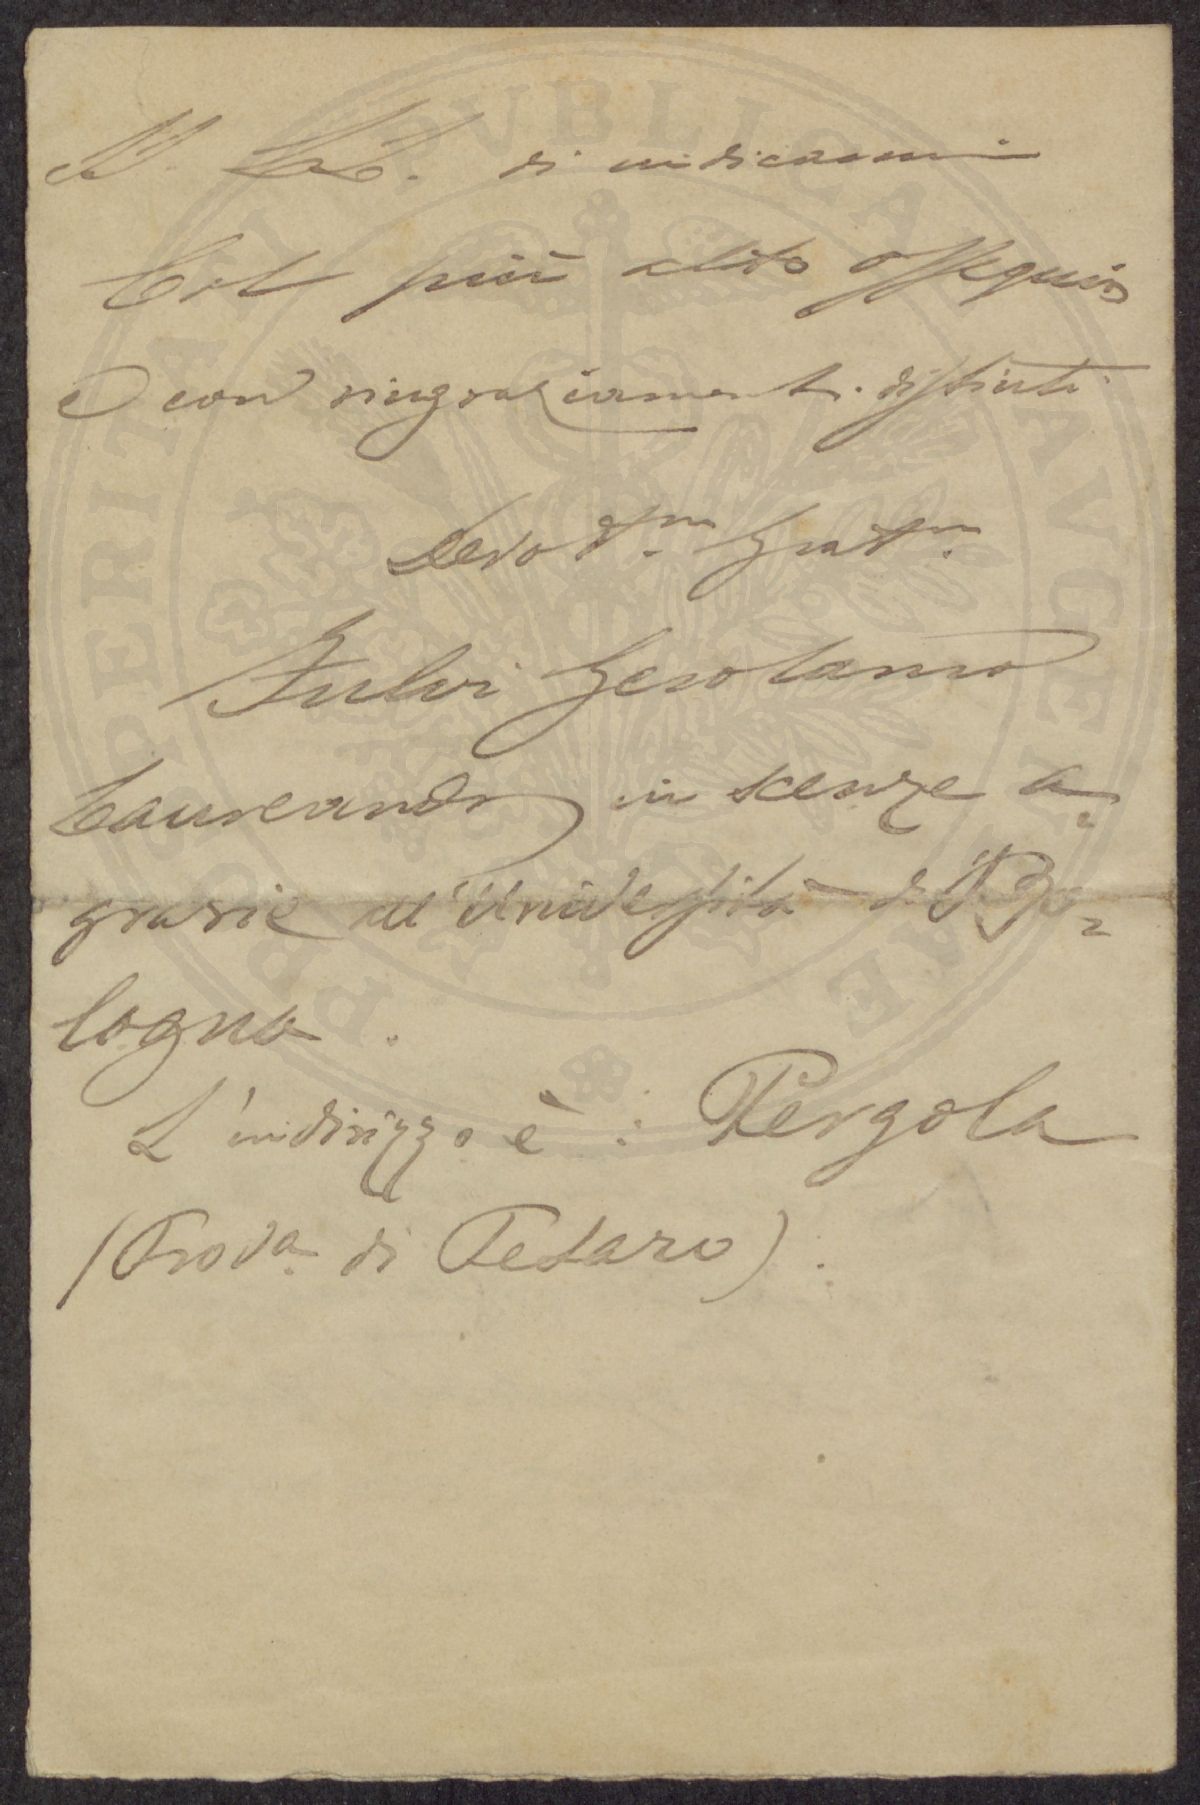 S. Ill. di indicarmi
Col più alto ossequio
e con ringraziamenti distinti
Devotm. Gratm.
Fulvi Gerolamo
Laureando in scenze a=
grarie all'Università di Bo=
logna.
L'indirizzo è: Pergola
(Prova. di Pesaro).
PUBLICAE AUGENDAE
PROSPERITATI